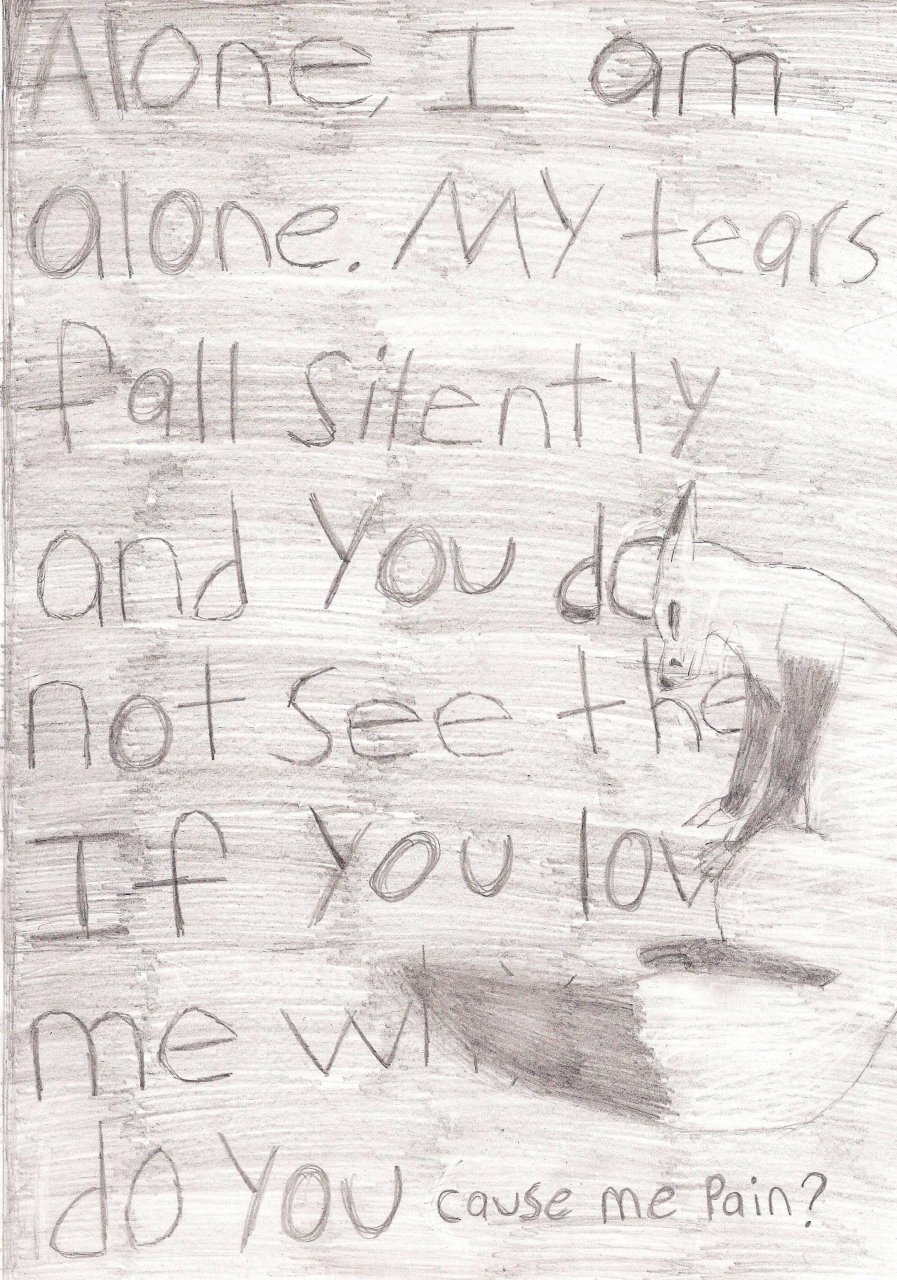 Alone, I am
alone. My tears
fall silently
and you do
not see the
If you lov
me
do you cause me pain?